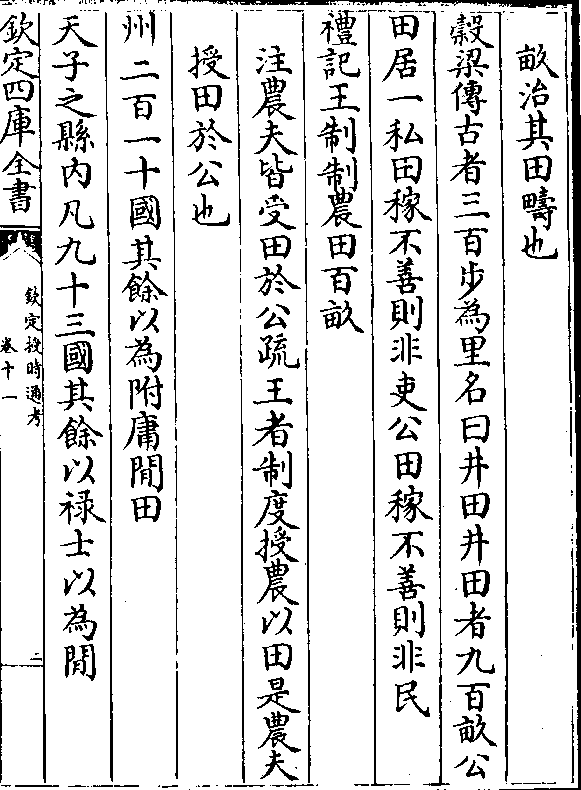 畝治其田疇也
糓梁傳古者三百步為里名曰井田井田者九百畝公
田居一私田稼不善則非吏公田稼不善則非民
禮記王制制農田百畝
注農夫皆受田於公疏王者制度授農以田是農夫
授田於公也
州二百一十國其餘以為附庸閒田
天子之縣内凡九十三國其餘以禄士以為閒
欽定四庫全書
欽定授時通考
卷十一
二